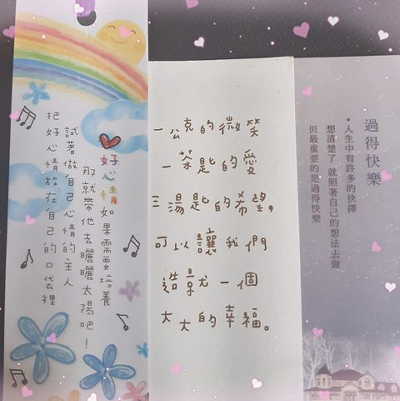 好心情 如果需要培養
那就帶他去曬曬太陽吧!
試著做自己心情的主人
把好心情放在自己的口袋裡
一公克的微笑
一茶匙的愛
三湯匙的希望,
可以讓我們
造就一個
大大的幸福。
過得快樂
*人生中有許多的抉擇
想清楚了 就照著自己的想法去做
但最重要的是過得快樂